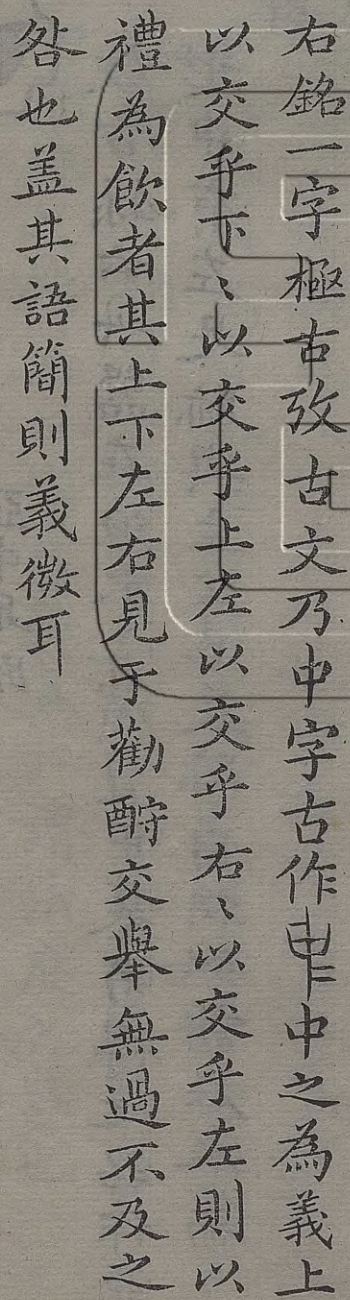 右銘一字極古攷古文乃中字古作中之為義上
以交乎下〻以交乎上左以交乎右〻以交乎左則以
禮為飲者其上下左右見于勸酧交舉無過不及之
咎也盖其語簡則義微耳